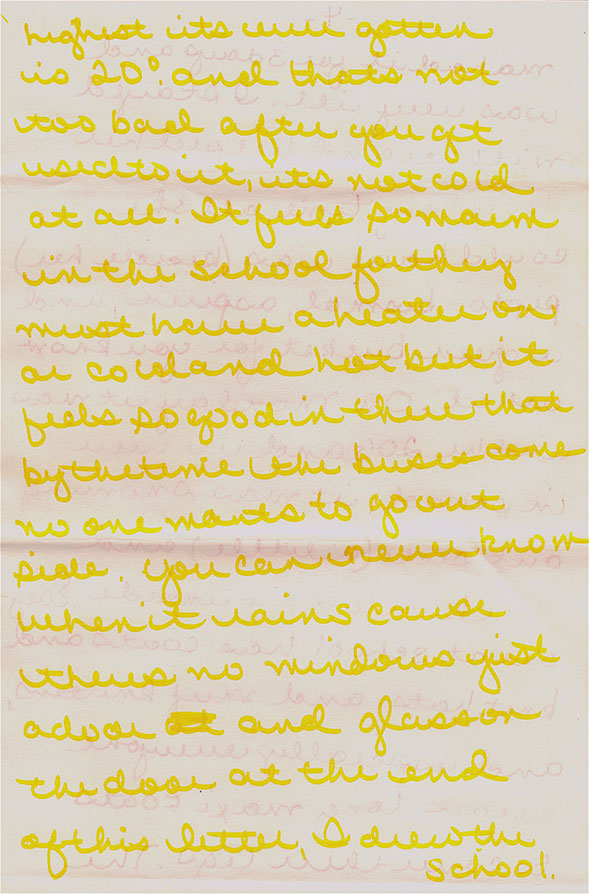 highest its ever gotten
is 20°. and thats not
too bad after you get
used to it, its not cold
at all. It feels so warm
in the school for they
must have a heater on
or cold and hot but it
feels so good in there that
by the time the buses come
no one wants to go out
side. you can never know
when it rains cause
theres no windows just
a door and glass on
the door at the end
of this letter, I drew the
school.